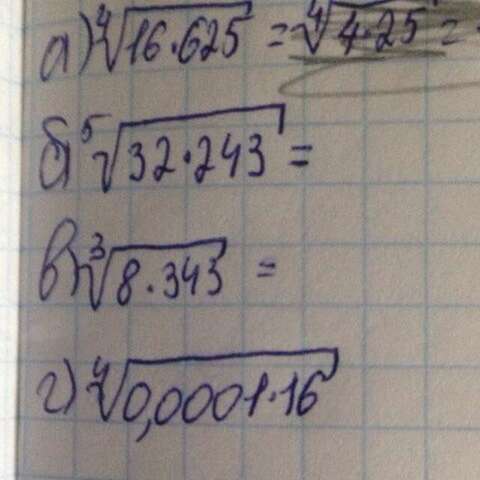 а) ⁴√16·625 = ⁴√4·25 =
б) ⁵√32·243 =
в) ³√8·343 =
г) ⁴√0,0001·16